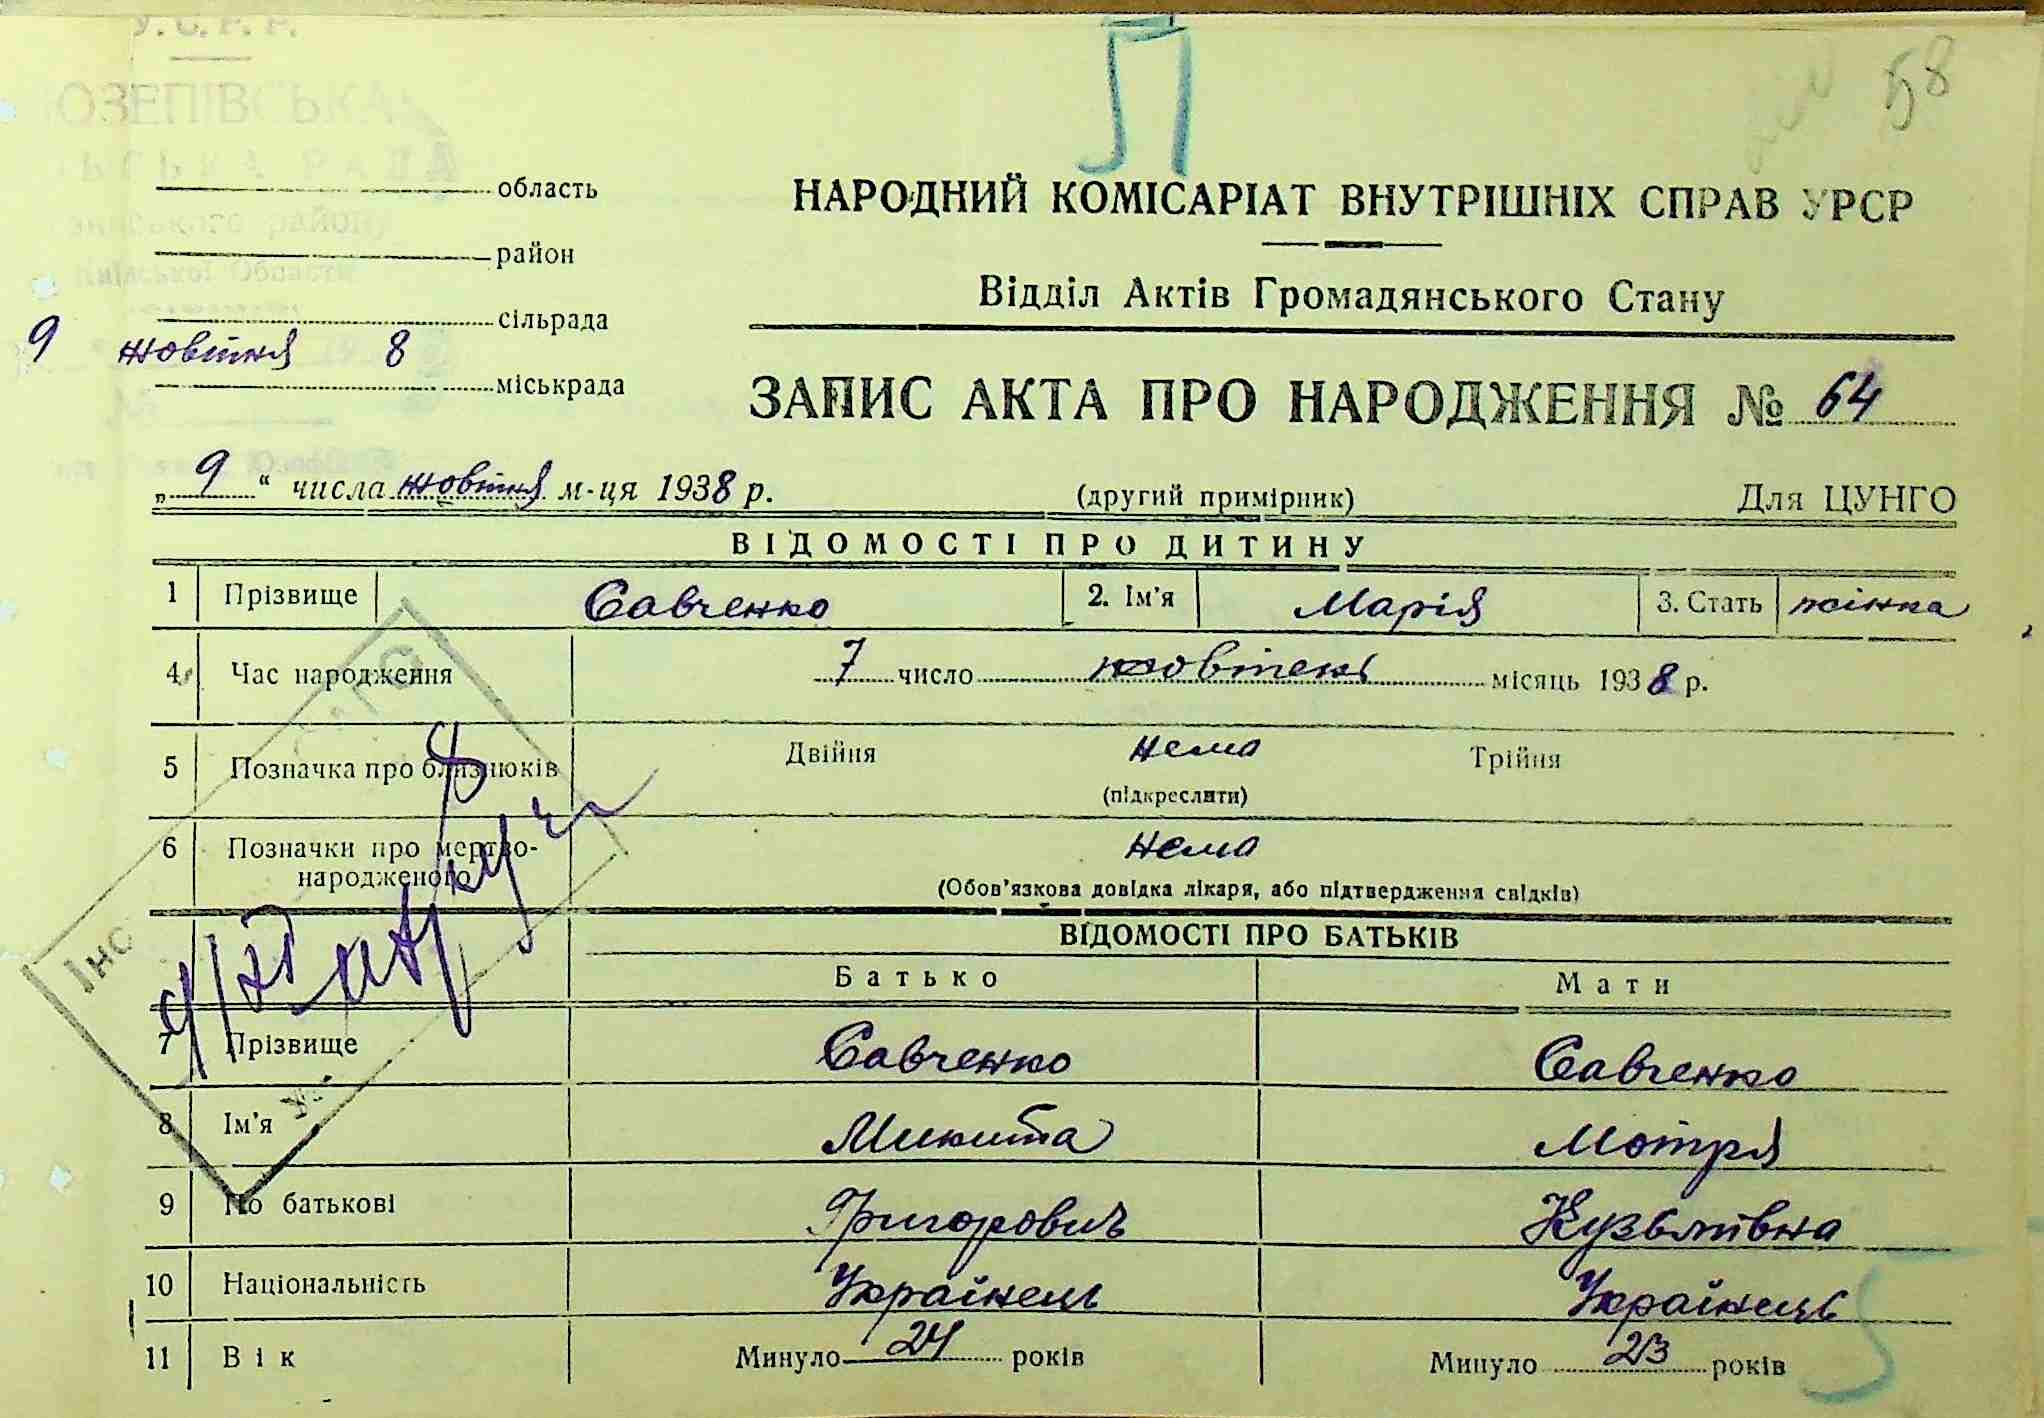 У. С. Р. Р.
П
58
ОЗЕПІВСЬКА
ЬСЬКА РАДА
область
НАРОДНИЙ КОМІСАРІАТ ВНУТРІШНІХ СПРАВ УРСР
району
район
Київської Области
Відділ Актів Громадянського Стану
сільрада
9 жовтня 8
міськрада
ЗАПИС АКТА ПРО НАРОДЖЕННЯ № 64
„ 9 “ числа жовтня м-ця 1938 р.
(другий примірник)
Для ЦУНГО
ВІДОМОСТІ ПРО ДИТИНУ
1 Прізвище Савченко 2. Ім'я Марія 3. Стать жінка
4 Час народження 7 число жовтень місяць 1938 р.
5 Позначка про близнюків Двійня нема Трійня
(підкреслити)
6 Позначки про мертво-
народженого нема
(Обов'язкова довідка лікаря, або підтвердження свідків)
ВІДОМОСТІ ПРО БАТЬКІВ
Батько Мати
7 Прізвище Савченко Савченко
8 Ім'я Микита Мотря
9 По батькові Григорович Кузьмівна
10 Національність Українець Українець
11 Вік Минуло 24 років Минуло 23 років
5